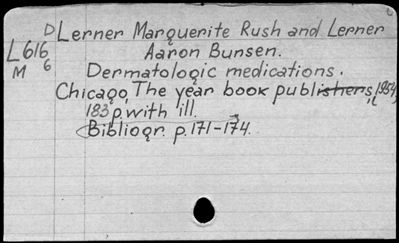 D Lerner Marguerite Rush and Lerner
L616 Aaron Bunsen.
M 6 Dermatologic medications.
Chicago, The year book publishers, 1954,
183 p. with ill.
Bibliogr. p. 171-174.